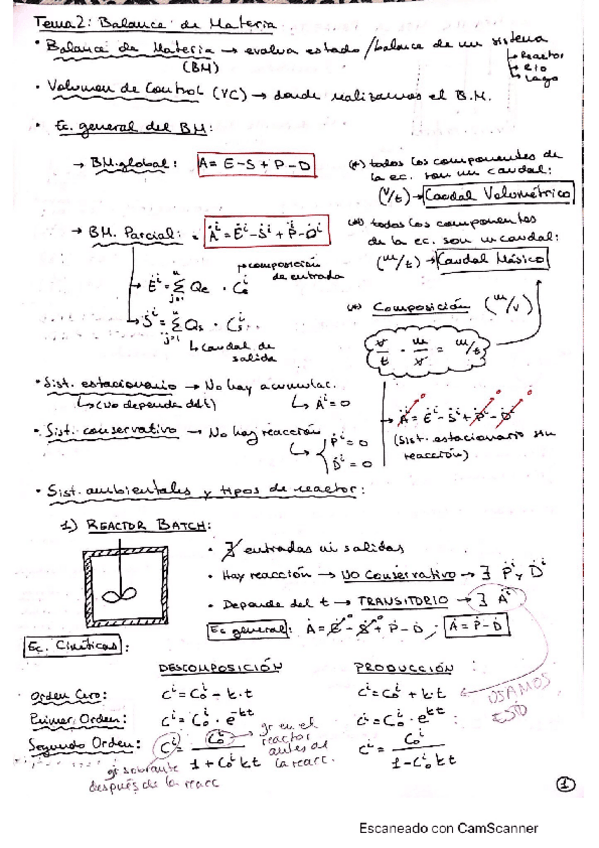 Tema 2: Balance de Materia
• Balance de Materia → evalua estado/balance de un sistema
(BM)
↳ Reactor
↳ Río
↳ Lago
• Volumen de Control (VC) → donde realizamos el B.M.
• Ec. general del BM:
→ BM. global: A = E - S + P - D
(*) todos los componentes de
la ec. son un caudal:
(V/t) → Caudal Volumétrico
→ BM. Parcial: Ȧⁱ = Ėⁱ - Ṡⁱ + Ṗⁱ - Ḋⁱ
(*) todos los componentes
de la ec. son un caudal:
(m/t) → Caudal Másico
↱ composición
de entrada
→ Ėⁱ = Σ Qe · Cⁱe
→ Ṡⁱ = Σ Qs · Cⁱs
↳ caudal de
salida
(*) Composición (m/v)
v/t · m/v = m/t
• Sist. estacionario → No hay acumulac.
↳ (No depende del t) ↳ Ȧⁱ = 0
→ Ȧⁱ = Ėⁱ - Ṡⁱ + Ṗⁱ - Ḋⁱ
(Sist. estacionario sin
reacción)
• Sist. conservativo → No hay reacción
↳ { Ṗⁱ = 0
Ḋⁱ = 0
• Sist. ambientales y tipos de reactor:
1) REACTOR BATCH:
• ∄ entradas ni salidas
• Hay reacción → NO Conservativo → ∃ Ṗⁱ y Ḋⁱ
• Depende del t → TRANSITORIO → ∃ Ȧⁱ
Ec general: Ȧ = Ė - Ṡ + Ṗ - Ḋ ; Ȧ = Ṗ - Ḋ
Ec. Cinéticas:
DESCOMPOSICIÓN PRODUCCIÓN
Orden Cero: Cⁱ = Cⁱ₀ - k·t Cⁱ = Cⁱ₀ + k·t
USAMOS
ESTO
Primer Orden: Cⁱ = Cⁱ₀ · e^-kt Cⁱ = Cⁱ₀ · e^kt
Segundo Orden: Cⁱ = Cⁱ₀ / (1 + Cⁱ₀ kt) Cⁱ = Cⁱ₀ / (1 - Cⁱ₀ kt)
gr en el
reactor
antes de
la reacc.
gr sobrante
después de la reacc
1
Escaneado con CamScanner